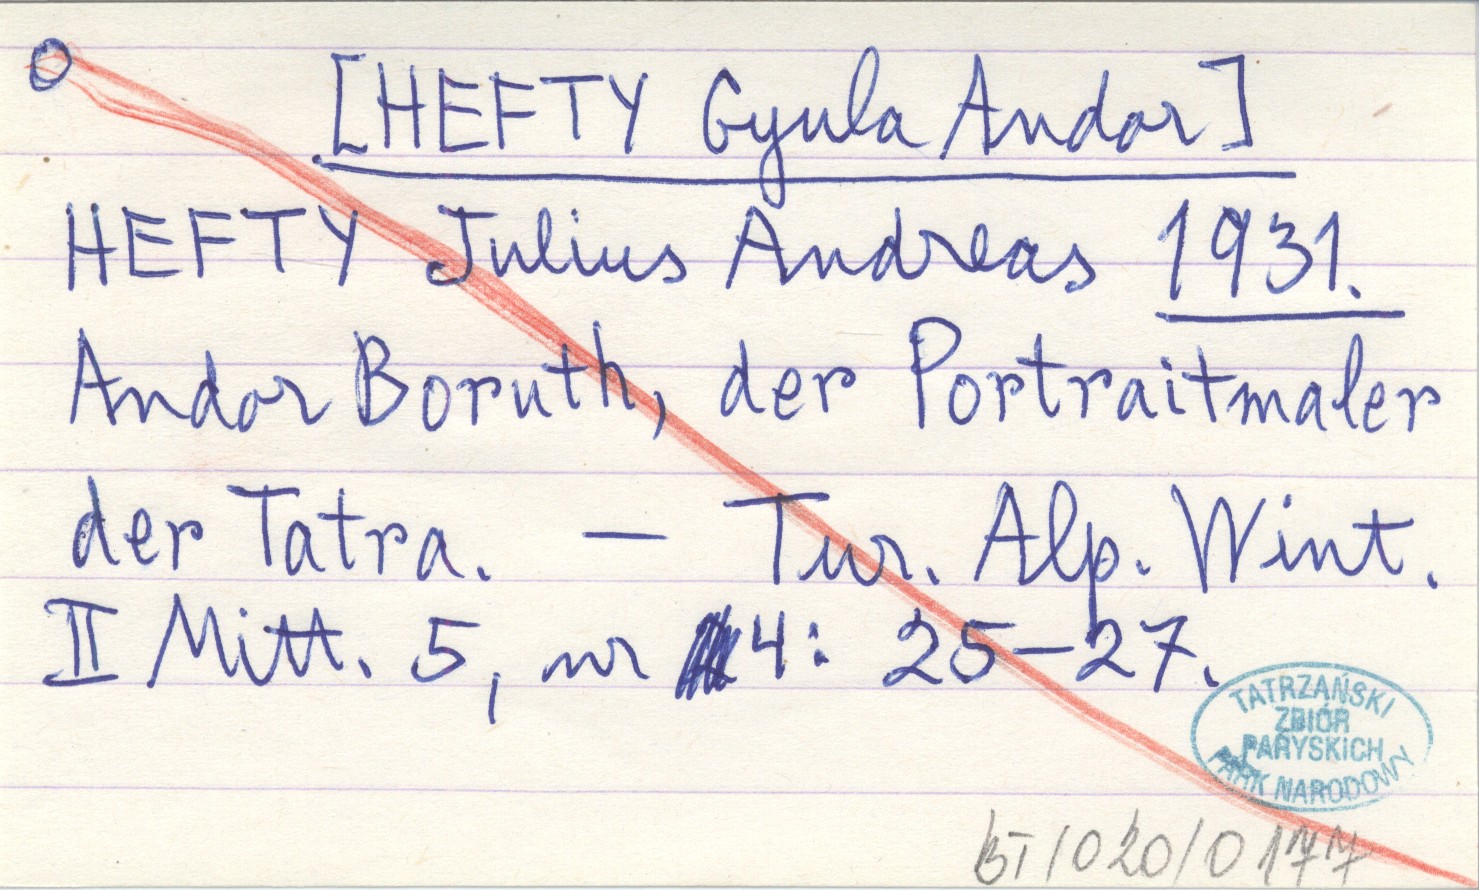 [HEFTY Gyula Andor]
HEFTY Julius Andreas 1931.
Andor Boruth, der Portraitmaler
der Tatra. — Tur. Alp. Wint.
II Mitt. 5, nr 4: 25–27.
TATRZAŃSKI
ZBIÓR
PARYSKICH
PARK NARODOWY
BT/020/0177